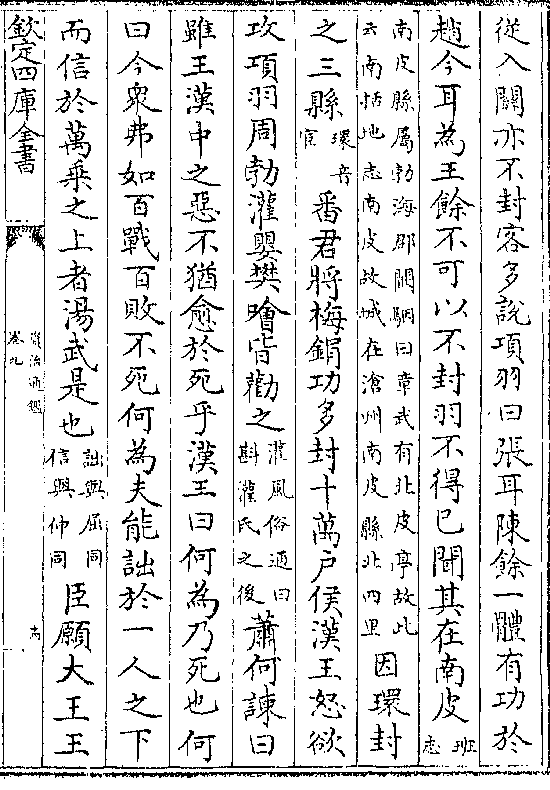 從入關亦不封客多說項羽曰張耳陳餘一體有功於
趙今耳為王餘不可以不封羽不得已聞其在南皮班志
南皮縣屬勃海郡闞駰曰章武有北皮亭故此
云南括地志南皮故城在滄州南皮縣北四里因環封
之三縣環音宦番君將梅鋗功多封十萬户侯漢王怒欲
攻項羽周勃灌嬰樊噲皆勸之灌風俗通曰斟灌氏之後蕭何諫曰
雖王漢中之惡不猶愈於死乎漢王曰何為乃死也何
曰今衆弗如百戰百敗不死何為夫能詘於一人之下
而信於萬乘之上者湯武是也詘與屈同信與伸同臣願大王王
欽定四庫全書
資治通鑑
卷九